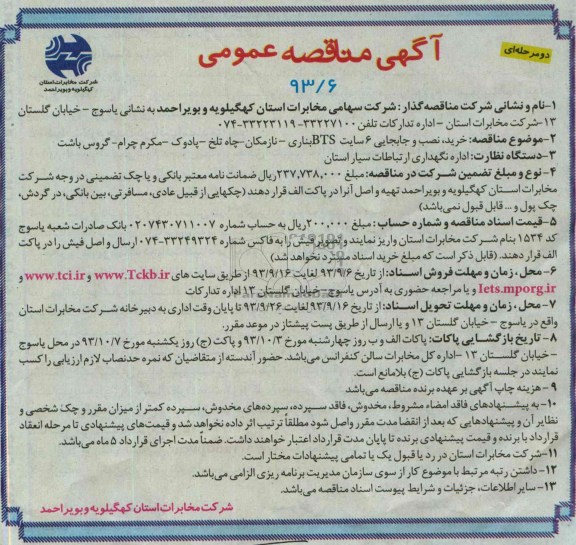 آگهی مناقصه عمومی
دو مرحله‌ای
۹۳/۶
شرکت مخابرات استان
کهگیلویه و بویراحمد
۱-نام و نشانی شرکت مناقصه گذار: شرکت سهامی مخابرات استان کهگیلویه و بویراحمد به نشانی یاسوج - خیابان گلستان
۱۳-شرکت مخابرات استان - اداره تدارکات تلفن ۳۳۲۲۷۱۰۰-۳۳۲۲۳۱۱۹-۰۷۴
۲-موضوع مناقصه: خرید، نصب و جابجایی ۶ سایت BTS بناری - نازمکان-چاه تلخ - پادوک -مکرم چرام-گروس باشت
۳-دستگاه نظارت: اداره نگهداری ارتباطات سیار استان
۴-نوع و مبلغ تضمین شرکت در مناقصه: مبلغ ۲۳۷,۷۳۸,۰۰۰ ریال ضمانت نامه معتبر بانکی و یا چک تضمینی در وجه شرکت
مخابرات استان کهگیلویه و بویراحمد تهیه و اصل آنرا در پاکت الف قرار دهند (چکهایی از قبیل عادی، مسافرتی، بین بانکی، در گردش،
چک پول و ... قابل قبول نمی‌باشد)
۵-قیمت اسناد مناقصه و شماره حساب: مبلغ ۲۰۰,۰۰۰ ریال به حساب شماره ۰۲۰۷۴۳۰۷۱۱۰۰۷ بانک صادرات شعبه یاسوج
کد ۱۵۳۴ بنام شرکت مخابرات استان واریز نمایند و تصویر فیش را به فاکس شماره ۳۳۲۴۹۳۲۴-۰۷۴ ارسال و اصل فیش را در پاکت
الف قرار دهند. (قابل ذکر است که مبلغ خرید اسناد مسترد نخواهد شد)
۶- محل، زمان و مهلت فروش اسناد: از تاریخ ۹۳/۹/۶ لغایت ۹۳/۹/۱۶ از طریق سایت های www.Tckb.ir و www.tci.ir و
Iets.mporg.ir و یا مراجعه حضوری به آدرس یاسوج-خیابان گلستان ۱۳ اداره تدارکات
۷- محل، زمان و مهلت تحویل اسناد: از تاریخ ۹۳/۹/۱۶ لغایت ۹۳/۹/۲۶ تا پایان وقت اداری به دبیرخانه شرکت مخابرات استان
واقع در یاسوج - خیابان گلستان ۱۳ و یا ارسال از طریق پست پیشتاز در موعد مقرر.
۸- تاریخ بازگشایی پاکات: پاکات الف و ب روز چهارشنبه مورخ ۹۳/۱۰/۳ و پاکت (ج) روز یکشنبه مورخ ۹۳/۱۰/۷ در محل یاسوج
- خیابان گلستان ۱۳ -اداره کل مخابرات سالن کنفرانس می‌باشد. حضور آندسته از متقاضیان که نمره حدنصاب لازم ارزیابی را کسب
نمایند در جلسه بازگشایی پاکات (ج) بلامانع است.
۹- هزینه چاپ آگهی بر عهده برنده مناقصه می‌باشد
۱۰-به پیشنهادهای فاقد امضاء مشروط، مخدوش، فاقد سپرده، سپرده‌های مخدوش، سپرده کمتر از میزان مقرر و چک شخصی و
نظایر آن و پیشنهادهایی که بعد از انقضا مدت مقرر واصل شود مطلقاً ترتیب اثر داده نخواهد شد و قیمت‌های پیشنهادی تا مرحله انعقاد
قرارداد با برنده و قیمت پیشنهادی برنده تا پایان مدت قرارداد اعتبار خواهند داشت. ضمناً مدت اجرای قرارداد ۵ ماه می‌باشد.
۱۱-شرکت مخابرات استان در رد یا قبول یک یا تمامی پیشنهادات مختار است.
۱۲-داشتن رتبه مرتبط با موضوع کار از سوی سازمان مدیریت برنامه ریزی الزامی می‌باشد.
۱۳- سایر اطلاعات، جزئیات و شرایط پیوست اسناد مناقصه می‌باشد.
شرکت مخابرات استان کهگیلویه و بویراحمد